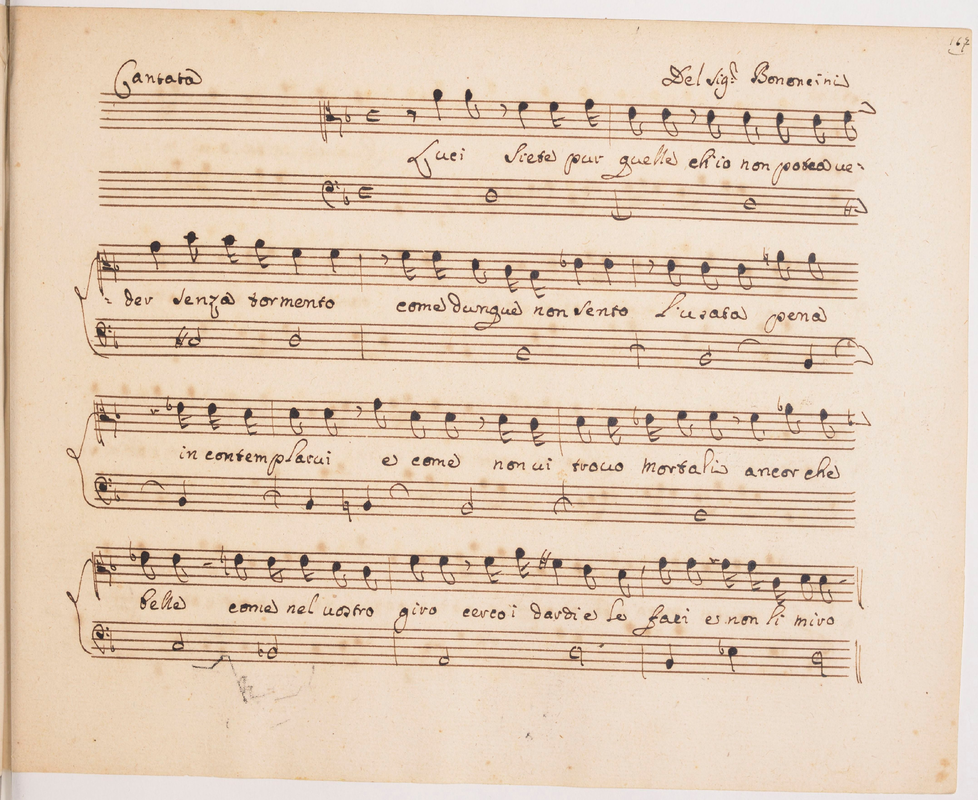 167
Cantata Del Sig.r Bononcini
Luci siete pur quelle ch'io non potea ve=
=der senza tormento come dunque non sento l'usata pena
in contemplarvi e come non vi trovo mortali ancor che
belle come nel vostro giro cerco i dardi e le faci e non li miro